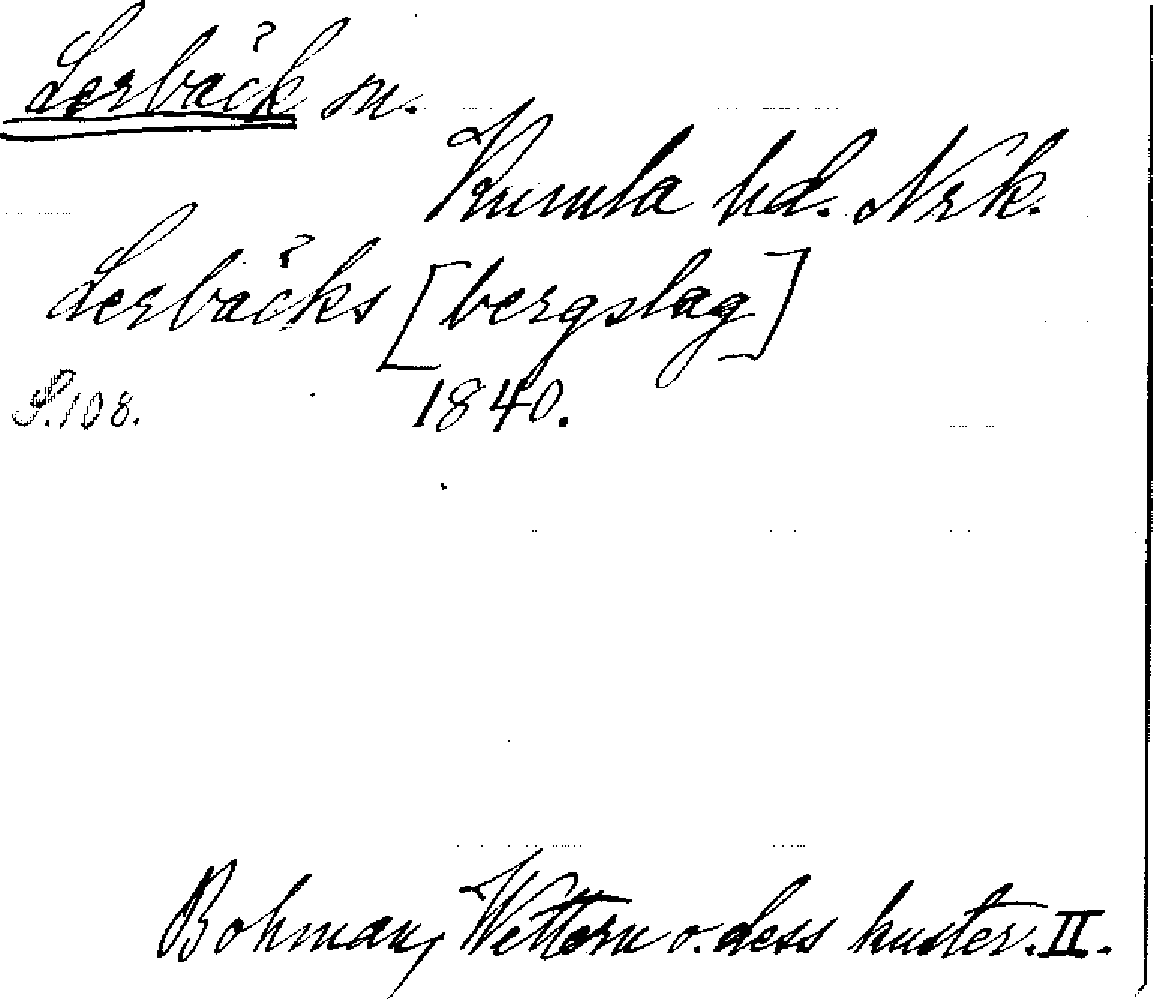 Lerbäck sn.
Kumla hd. Nrk.
Lerbäcks [bergslag]
S. 108. 1840.
Bohman, Wettern o. dess kuster. II.